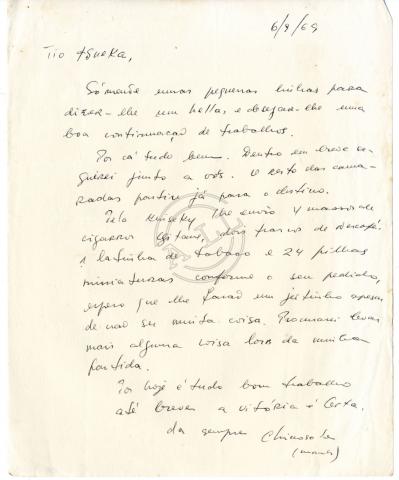 6/9/69
Tio Agneka,
Sómente umas pequenas linhas para
dizer-lhe um hello, e desejar-lhe uma
boa continuação de trabalhos.
Por cá tudo bem. Dentro em breve se-
guirei junto a vós. O resto dos cama-
radas partiu já para o destino.
Pelo lhe envio 4 massos de
cigarros Gitane, dois frascos de Nescafé,
1 latinha de tabaco e 24 pilhas
miniaturas conforme o seu pedido,
espero que lhe farão um jeitinho apesar
de não ser muita coisa. Procurarei levar
mais alguma coisa logo da minha
partida.
Por hoje é tudo bom trabalho
até breve, a vitória é certa.
da sempre